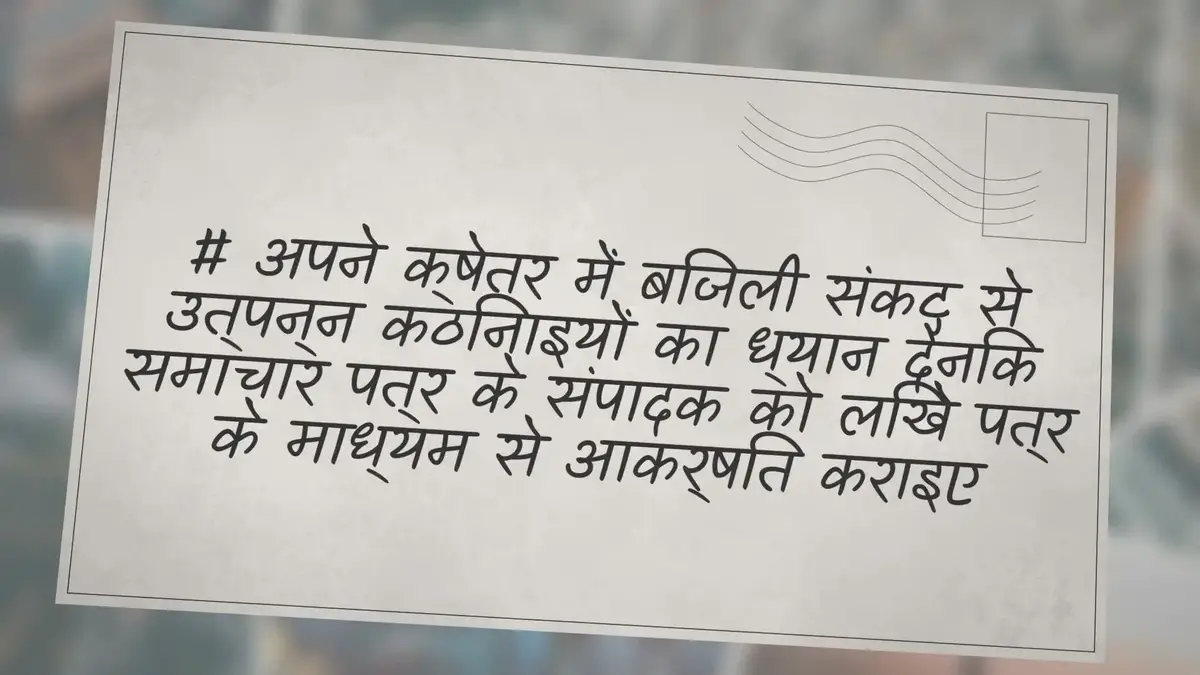 # अपने क्षेतर में बजिली संकट से
उत्पन्न कठनिाइयों का ध्यान दैनकि
समाचार पत्र के संपादक को लखिे पत्र
के माध्यम से आकर्षति कराइए